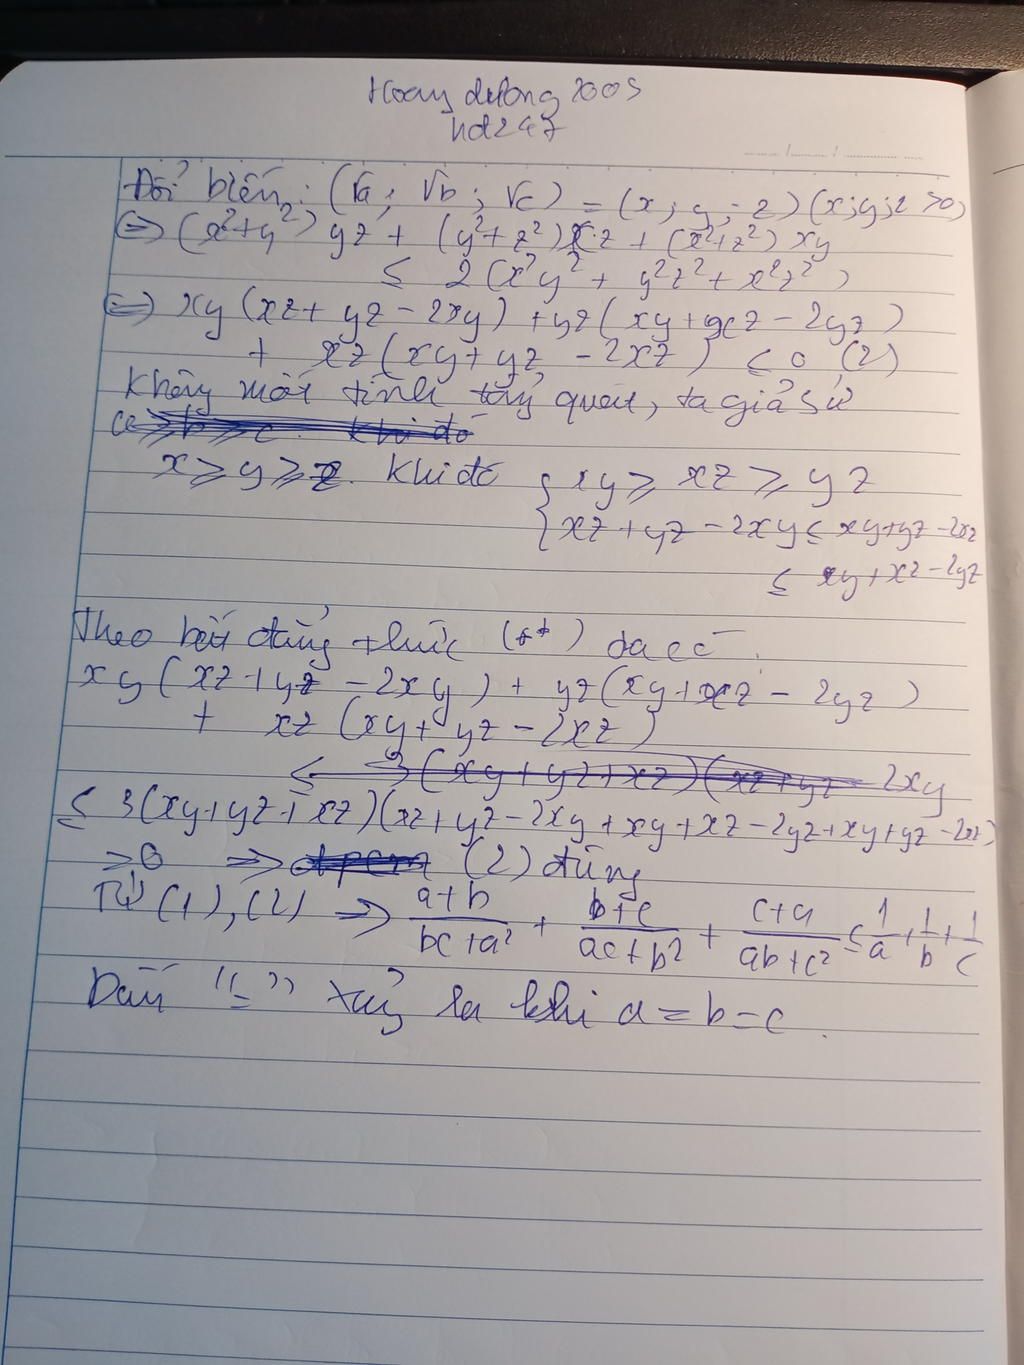 Hoàng dương 2005
hd247
Đổi biến: (√a; √b; √c) = (x; y; z) (x;y;z >0)
(=) (x²+y²) yz + (y²+z²)x.z + (x²+z²) xy
≤ 2(x²y² + y²z² + x²z²)
(=) xy(xz+ yz – 2xy) + yz(xy+xz – 2yz)
+ xz(xy+yz – 2xz) ≤ 0 (2)
Không mất tính tổng quát, ta giả sử
a≥b≥c. Khi đó
x≥y≥z. Khi đó { xy ≥ xz ≥ yz
{ xz+yz – 2xy ≤ xy+yz – 2xz
≤ xy+xz – 2yz
Theo bất đẳng thức (**) ta có
xy(xz+yz – 2xy) + yz(xy+xz – 2yz)
+ xz(xy+yz – 2xz)
≤ 3(xy+yz+xz)(xz+yz – 2xy
≤ 3(xy+yz+xz)(xz+yz–2xy+xy+xz–2yz+xy+yz–2xz)
=0 => đpcm (2) đúng
Từ (1),(2) => a+b/bc+a² + b+c/ac+b² + c+a/ab+c² ≤ 1/a + 1/b + 1/c
Dấu "=" xảy ra khi a = b = c.